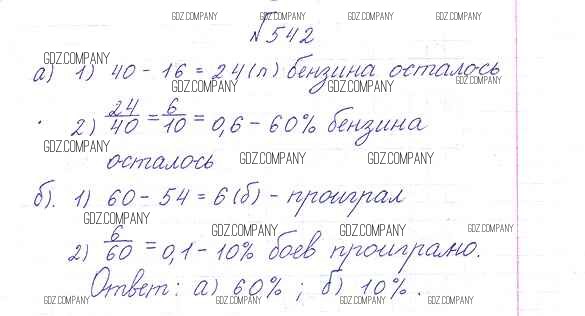 GDZ.COMPANY GDZ.COMPANY GDZ.COMPANY GDZ.COMPANY
№542
GDZ.COMPANY
а) 1) 40 - 16 = 24 (л) бензина осталось
GDZ.COMPANY GDZ.COMPANY GDZ.COMPANY
2) 24/40 = 6/10 = 0,6 - 60% бензина
GDZ.COMPANY GDZ.COMPANY GDZ.COMPANY
осталось
б). 1) 60 - 54 = 6 (б) - проиграл
GDZ.COMPANY GDZ.COMPANY GDZ.COMPANY GDZ.COMPANY
2) 6/60 = 0,1 - 10% боев проиграно.
Ответ: а) 60% ; б) 10% .
GDZ.COMPANY GDZ.COMPANY GDZ.COMPANY GDZ.COMPANY GDZ.COMPANY